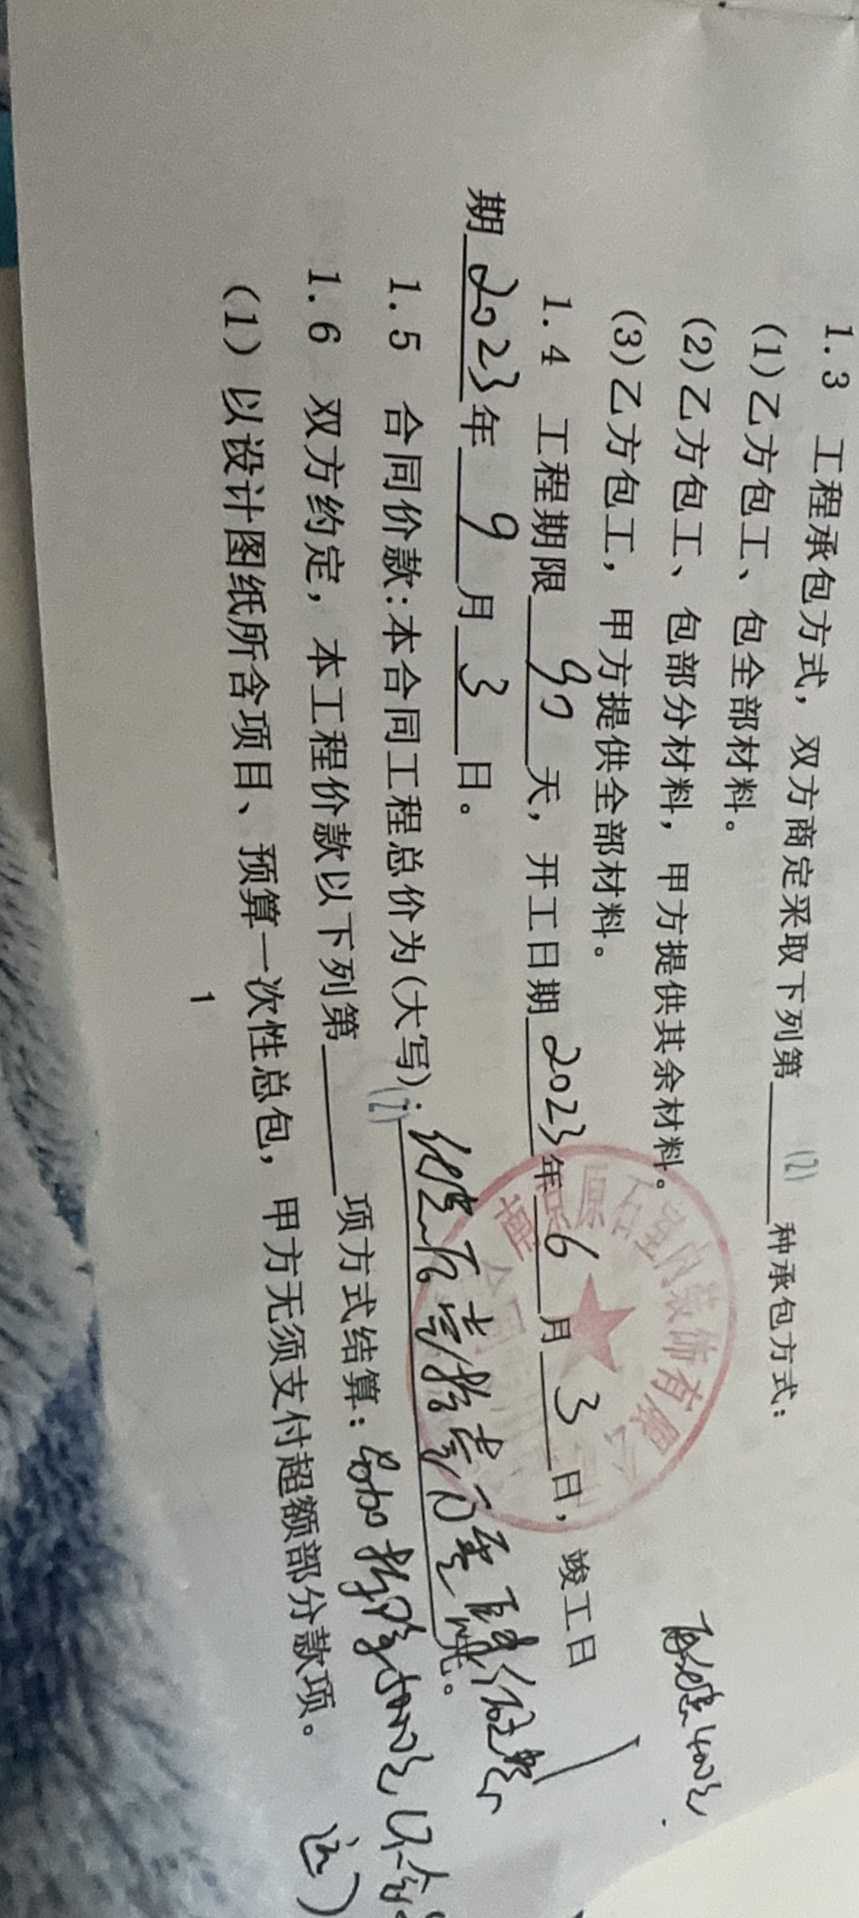 1.3 工程承包方式，双方商定采取下列第 (2) 种承包方式：
(1)乙方包工、包全部材料。
(2)乙方包工、包部分材料，甲方提供其余材料。
(3)乙方包工，甲方提供全部材料。
1.4 工程期限 90 天，开工日期 2023 年 6 月 3 日，竣工日
期 2023 年 9 月 3 日。
1.5 合同价款：本合同工程总价为(大写)：
1.6 双方约定，本工程价款以下列第 (2) 项方式结算：
(1) 以设计图纸所含项目、预算一次性总包，甲方无须支付超额部分款项。
1
原石室内装饰有限公